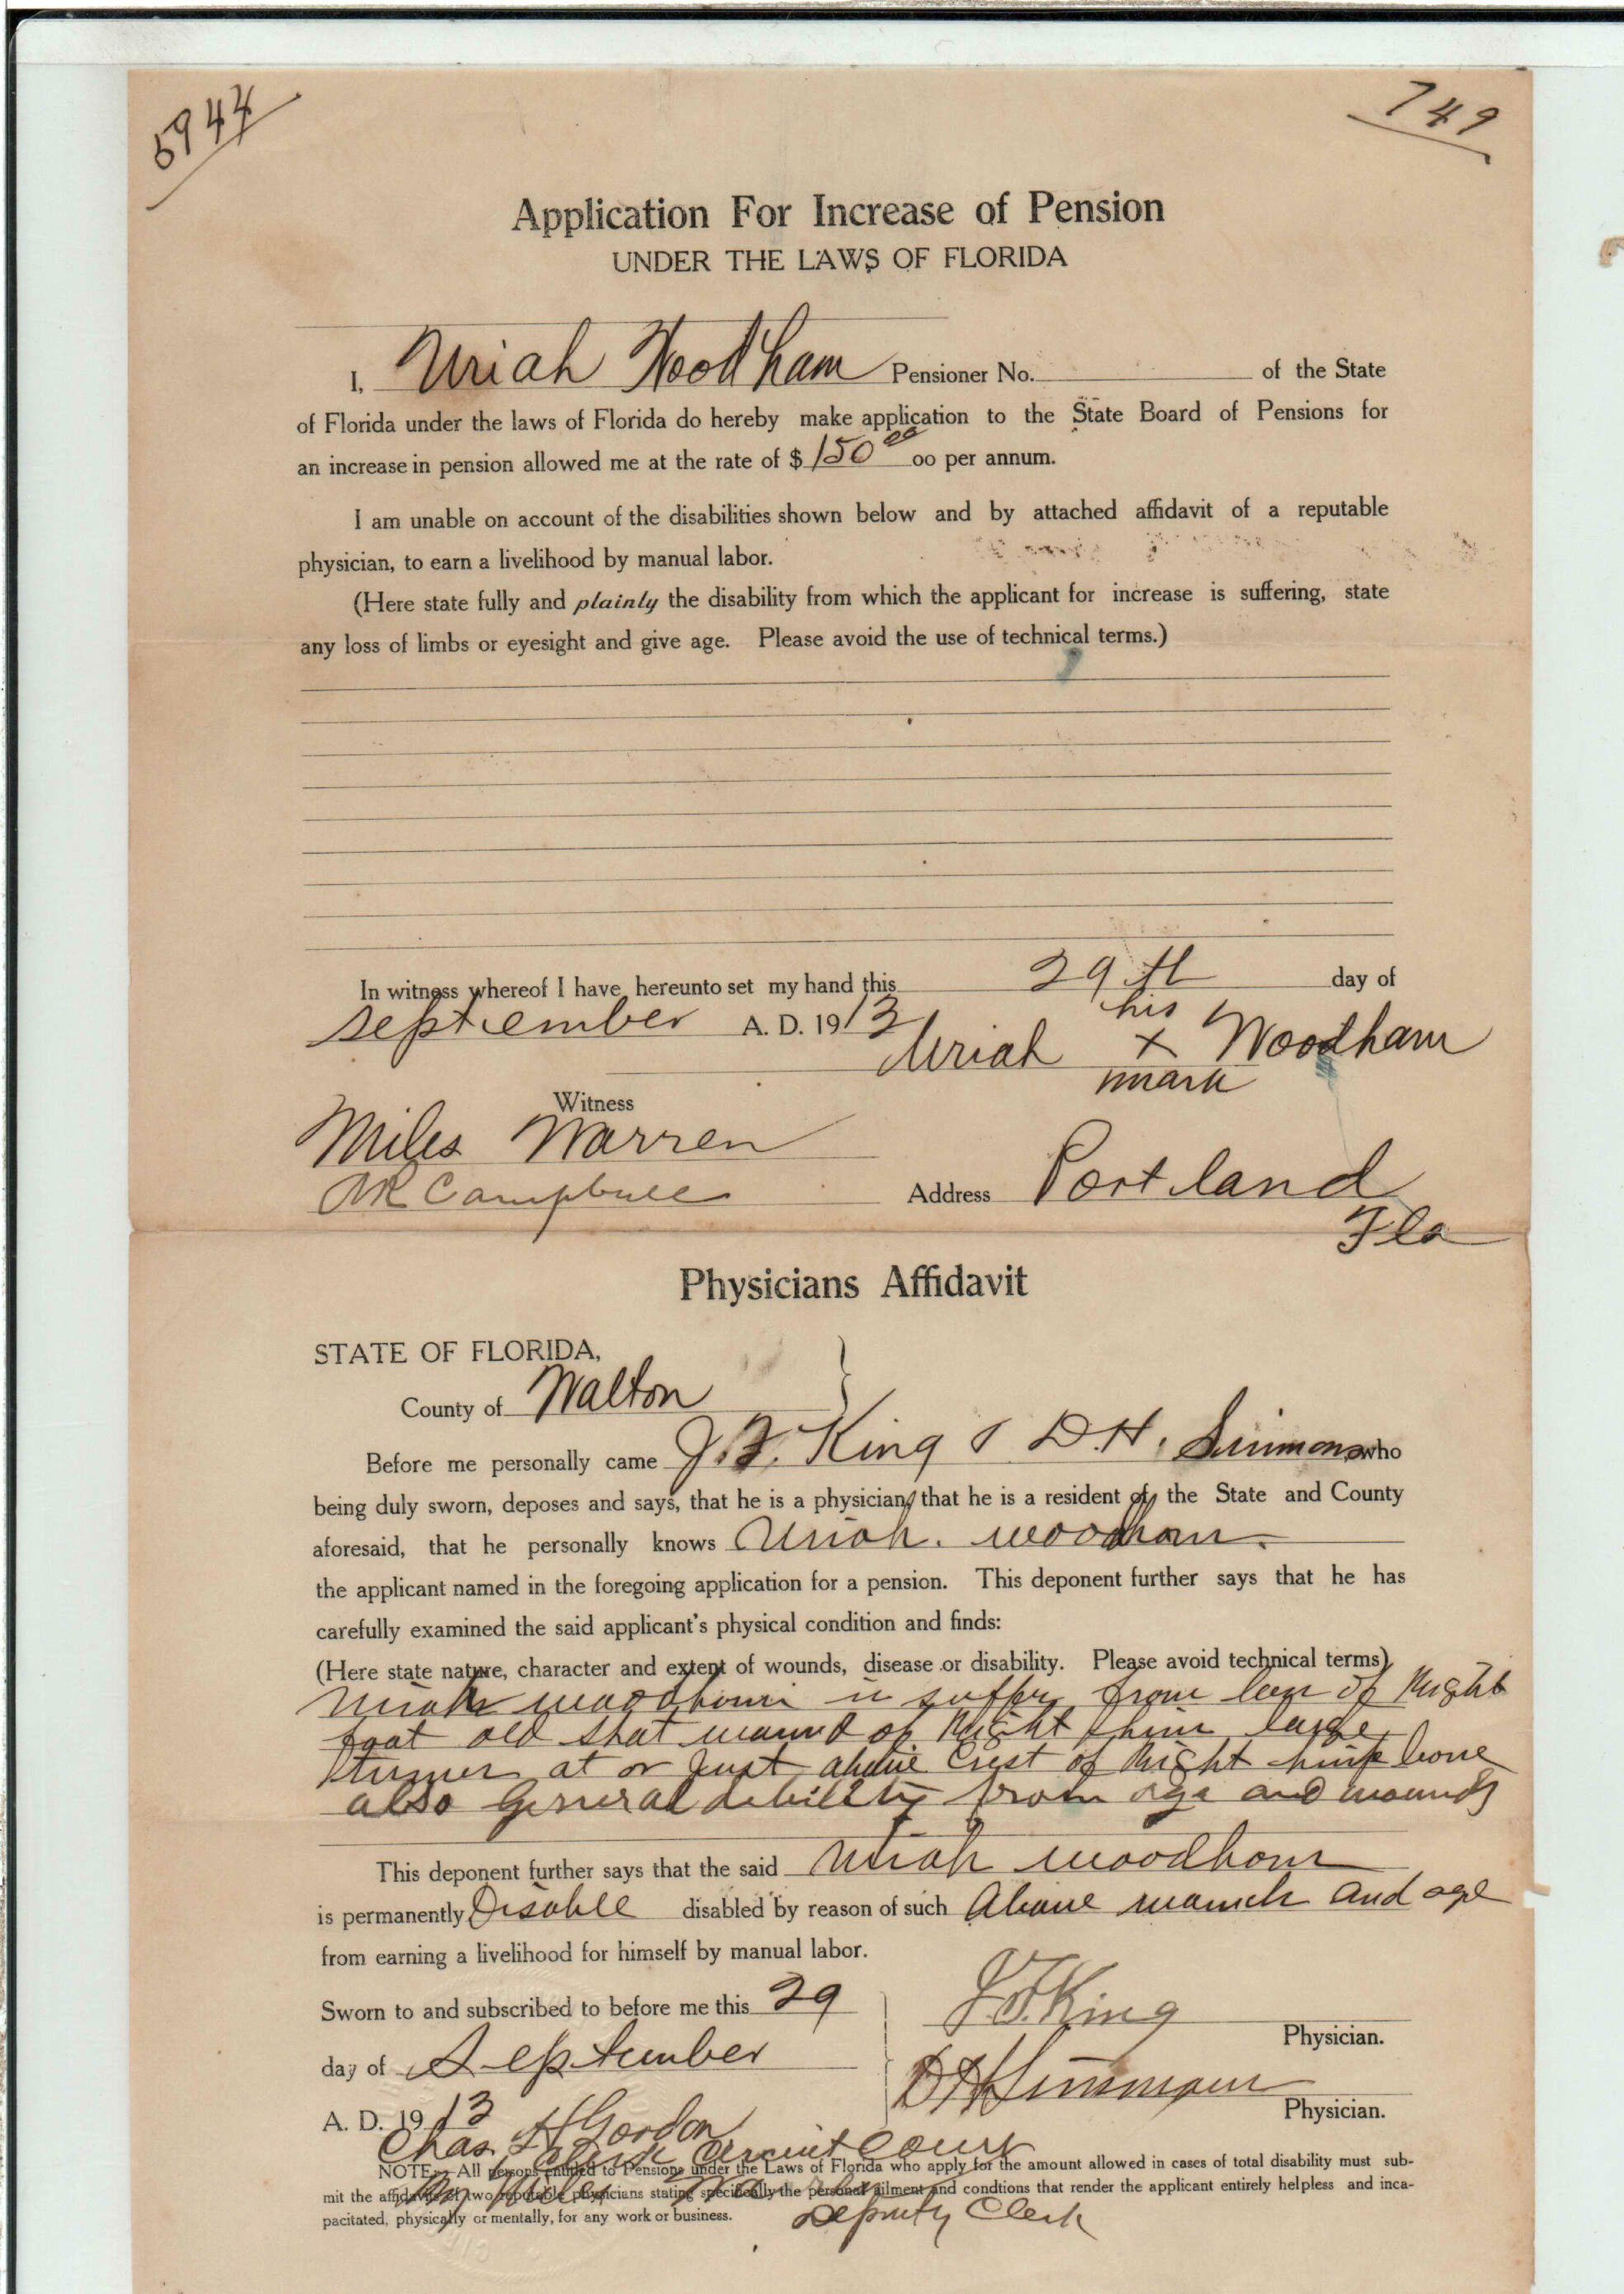 5944
749
Application For Increase of Pension
UNDER THE LAWS OF FLORIDA
I, Uriah Woodham Pensioner No. of the State
of Florida under the laws of Florida do hereby make application to the State Board of Pensions for
an increase in pension allowed me at the rate of $ 150 00 00 per annum.
I am unable on account of the disabilities shown below and by attached affidavit of a reputable
physician, to earn a livelihood by manual labor.
(Here state fully and plainly the disability from which the applicant for increase is suffering, state
any loss of limbs or eyesight and give age. Please avoid the use of technical terms.)
In witness whereof I have hereunto set my hand this 29th day of
September A. D. 1913
his
Uriah x Woodham
mark
Witness
Miles Warren
Campbell
Address Portland
Fla
Physicians Affidavit
STATE OF FLORIDA,
County of Walton
Before me personally came J.F. King & D.H. Simmons who
being duly sworn, deposes and says, that he is a physician, that he is a resident of the State and County
aforesaid, that he personally knows Uriah. Woodham.
the applicant named in the foregoing application for a pension. This deponent further says that he has
carefully examined the said applicant's physical condition and finds:
(Here state nature, character and extent of wounds, disease or disability. Please avoid technical terms)
Uriah Woodham is suffer from of Right
foot old shot wound of Right large
at or Just above Crest of Right bone
also General debility from age and wounds
This deponent further says that the said Uriah Woodham
is permanently Disable disabled by reason of such Above and age
from earning a livelihood for himself by manual labor.
Sworn to and subscribed to before me this 29
day of September
A. D. 1913
J.F. King
Physician.
D H Simmons
Physician.
Chas H Gordon
Clerk Circuit Court
NOTE:—All persons entitled to Pensions under the Laws of Florida who apply for the amount allowed in cases of total disability must sub-
mit the affidavits of two reputable physicians stating specifically the personal ailment and condtions that render the applicant entirely helpless and inca-
pacitated, physically or mentally, for any work or business.
By Miles Warren
Deputy Clerk